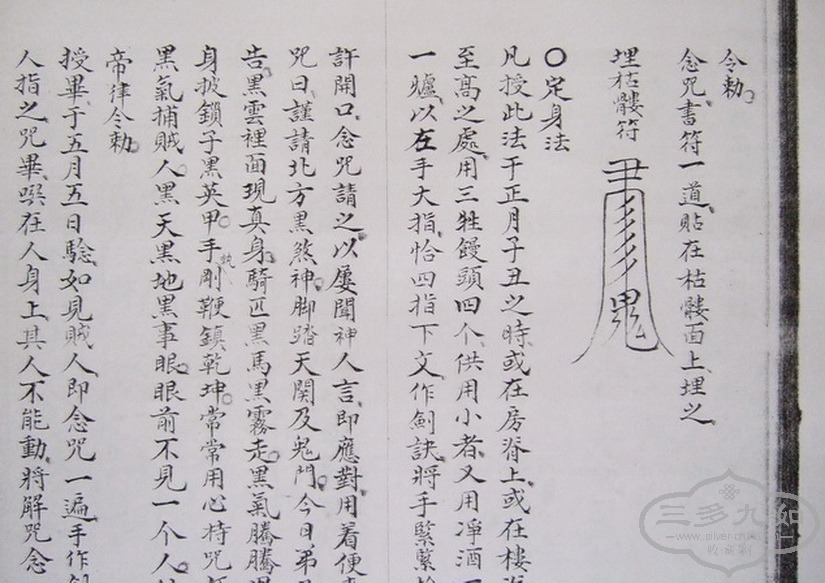 令勅
念咒書符一道貼在枯髏面上埋之
埋枯髏符
〇定身法
凡授此法于正月子丑之時或在房脊上或在楼
至髙之處用三牲饅頭四个供用小者又用淨酒
一爐以在手大指恰四指下文作劍訣將手緊緊
許開口念咒請之以屡聞神人言即應對用着便
咒曰謹請北方黒煞神脚踏天関及鬼門今日弟
告黒雲裡面現真身騎匹黒馬黒霧走黒氣騰騰
身披鎖子黒英甲手執剛鞭鎮乾坤常常用心持咒
黒氣捕賊人黒天黒地黒事眼眼前不見一个人
帝律令勅
授畢于五月五日騐如見賊人即念咒一遍手作劍
人指之咒畢噀在人身上其人不能動將解咒念
三多九如
www.silver-ch
收藏